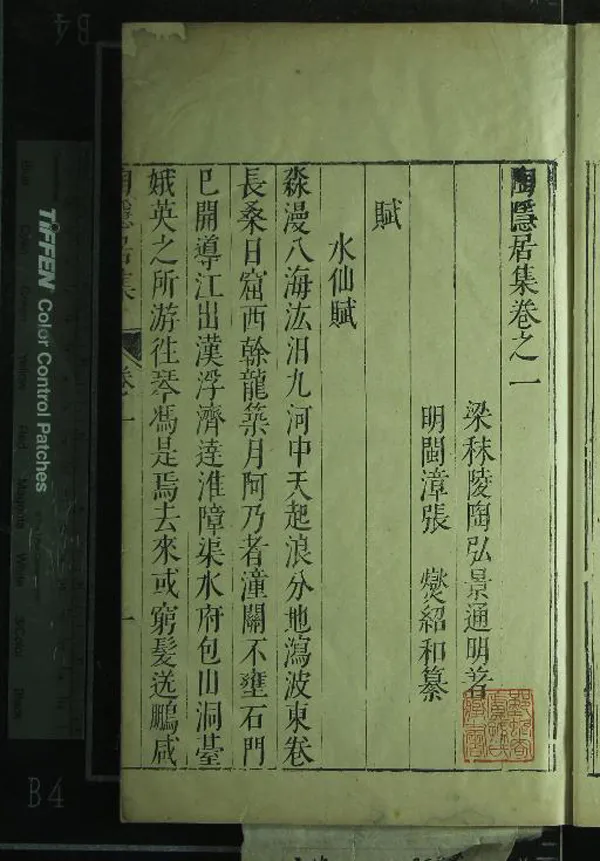 陶隱居集卷之一
梁秣陵陶弘景通明著
明閩漳張 燮紹和纂
賦
水仙賦
淼漫八海汯汨九河中天起浪分地瀉波東卷
長桑日窟西斡龍築月阿乃者潼關不壅石門
巳開導江出漢浮濟達淮障渠水府包山洞臺
娥英之所游往琴馮是焉去來或窮髮送鵬咸
陶隱居集
卷一
一
TIFFEN Color Control Patches
B4
B4